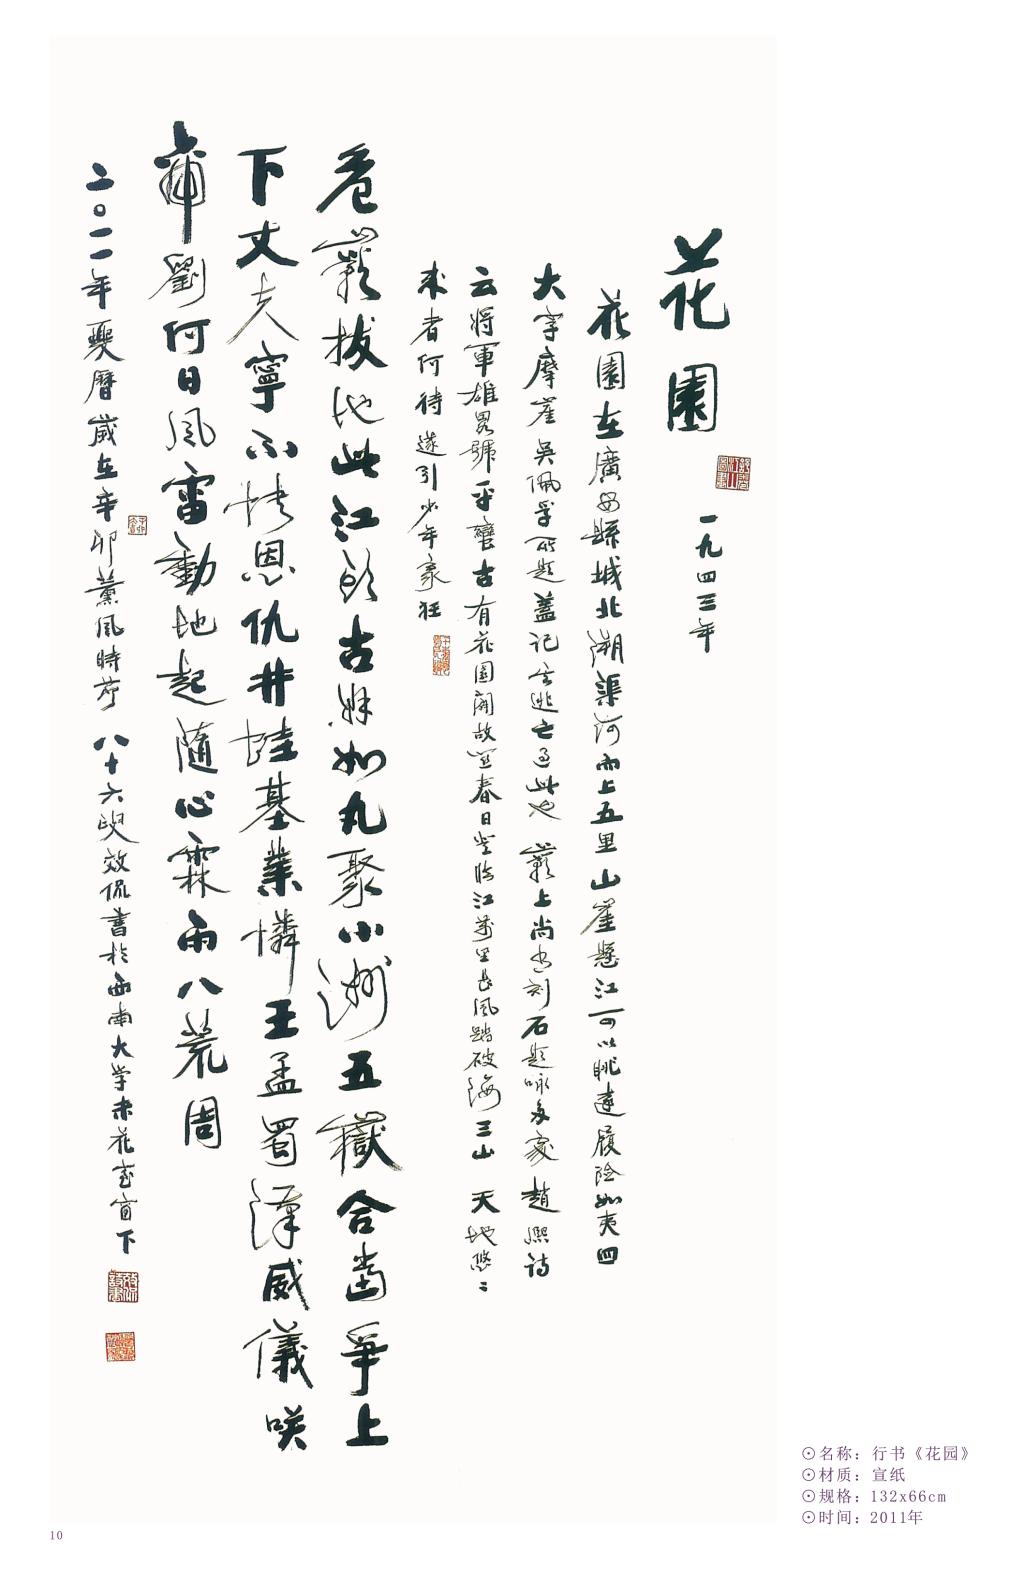 花園
一九四三年
花園在廣安縣城北溯渠河而上五里山崖懸江可以眺遠履險如夷四
大字摩崖吳佩孚所題蓋記其逃亡過此也 巖上尚書刻石題咏多家 趙熙詩
云將軍雄略號平蠻古有花園闢故關春日登臨江萬里長風踏破海三山 天地悠〻
来者何待遂引少年豪狂
危巖拔地此江頭古縣如丸聚小洲五嶽合齒爭上
下丈夫寧不快恩仇井蛙基業憐王孟蜀漢威儀咲
備劉何日風雷動地起隨心霖雨八荒周
二〇一一年夒曆歲在辛卯薰風時节 八十六叟效侃書於西南大学未花室窗下
⊙名称：行书《花园》
⊙材质：宣纸
⊙规格：132x66cm
⊙时间：2011年
10